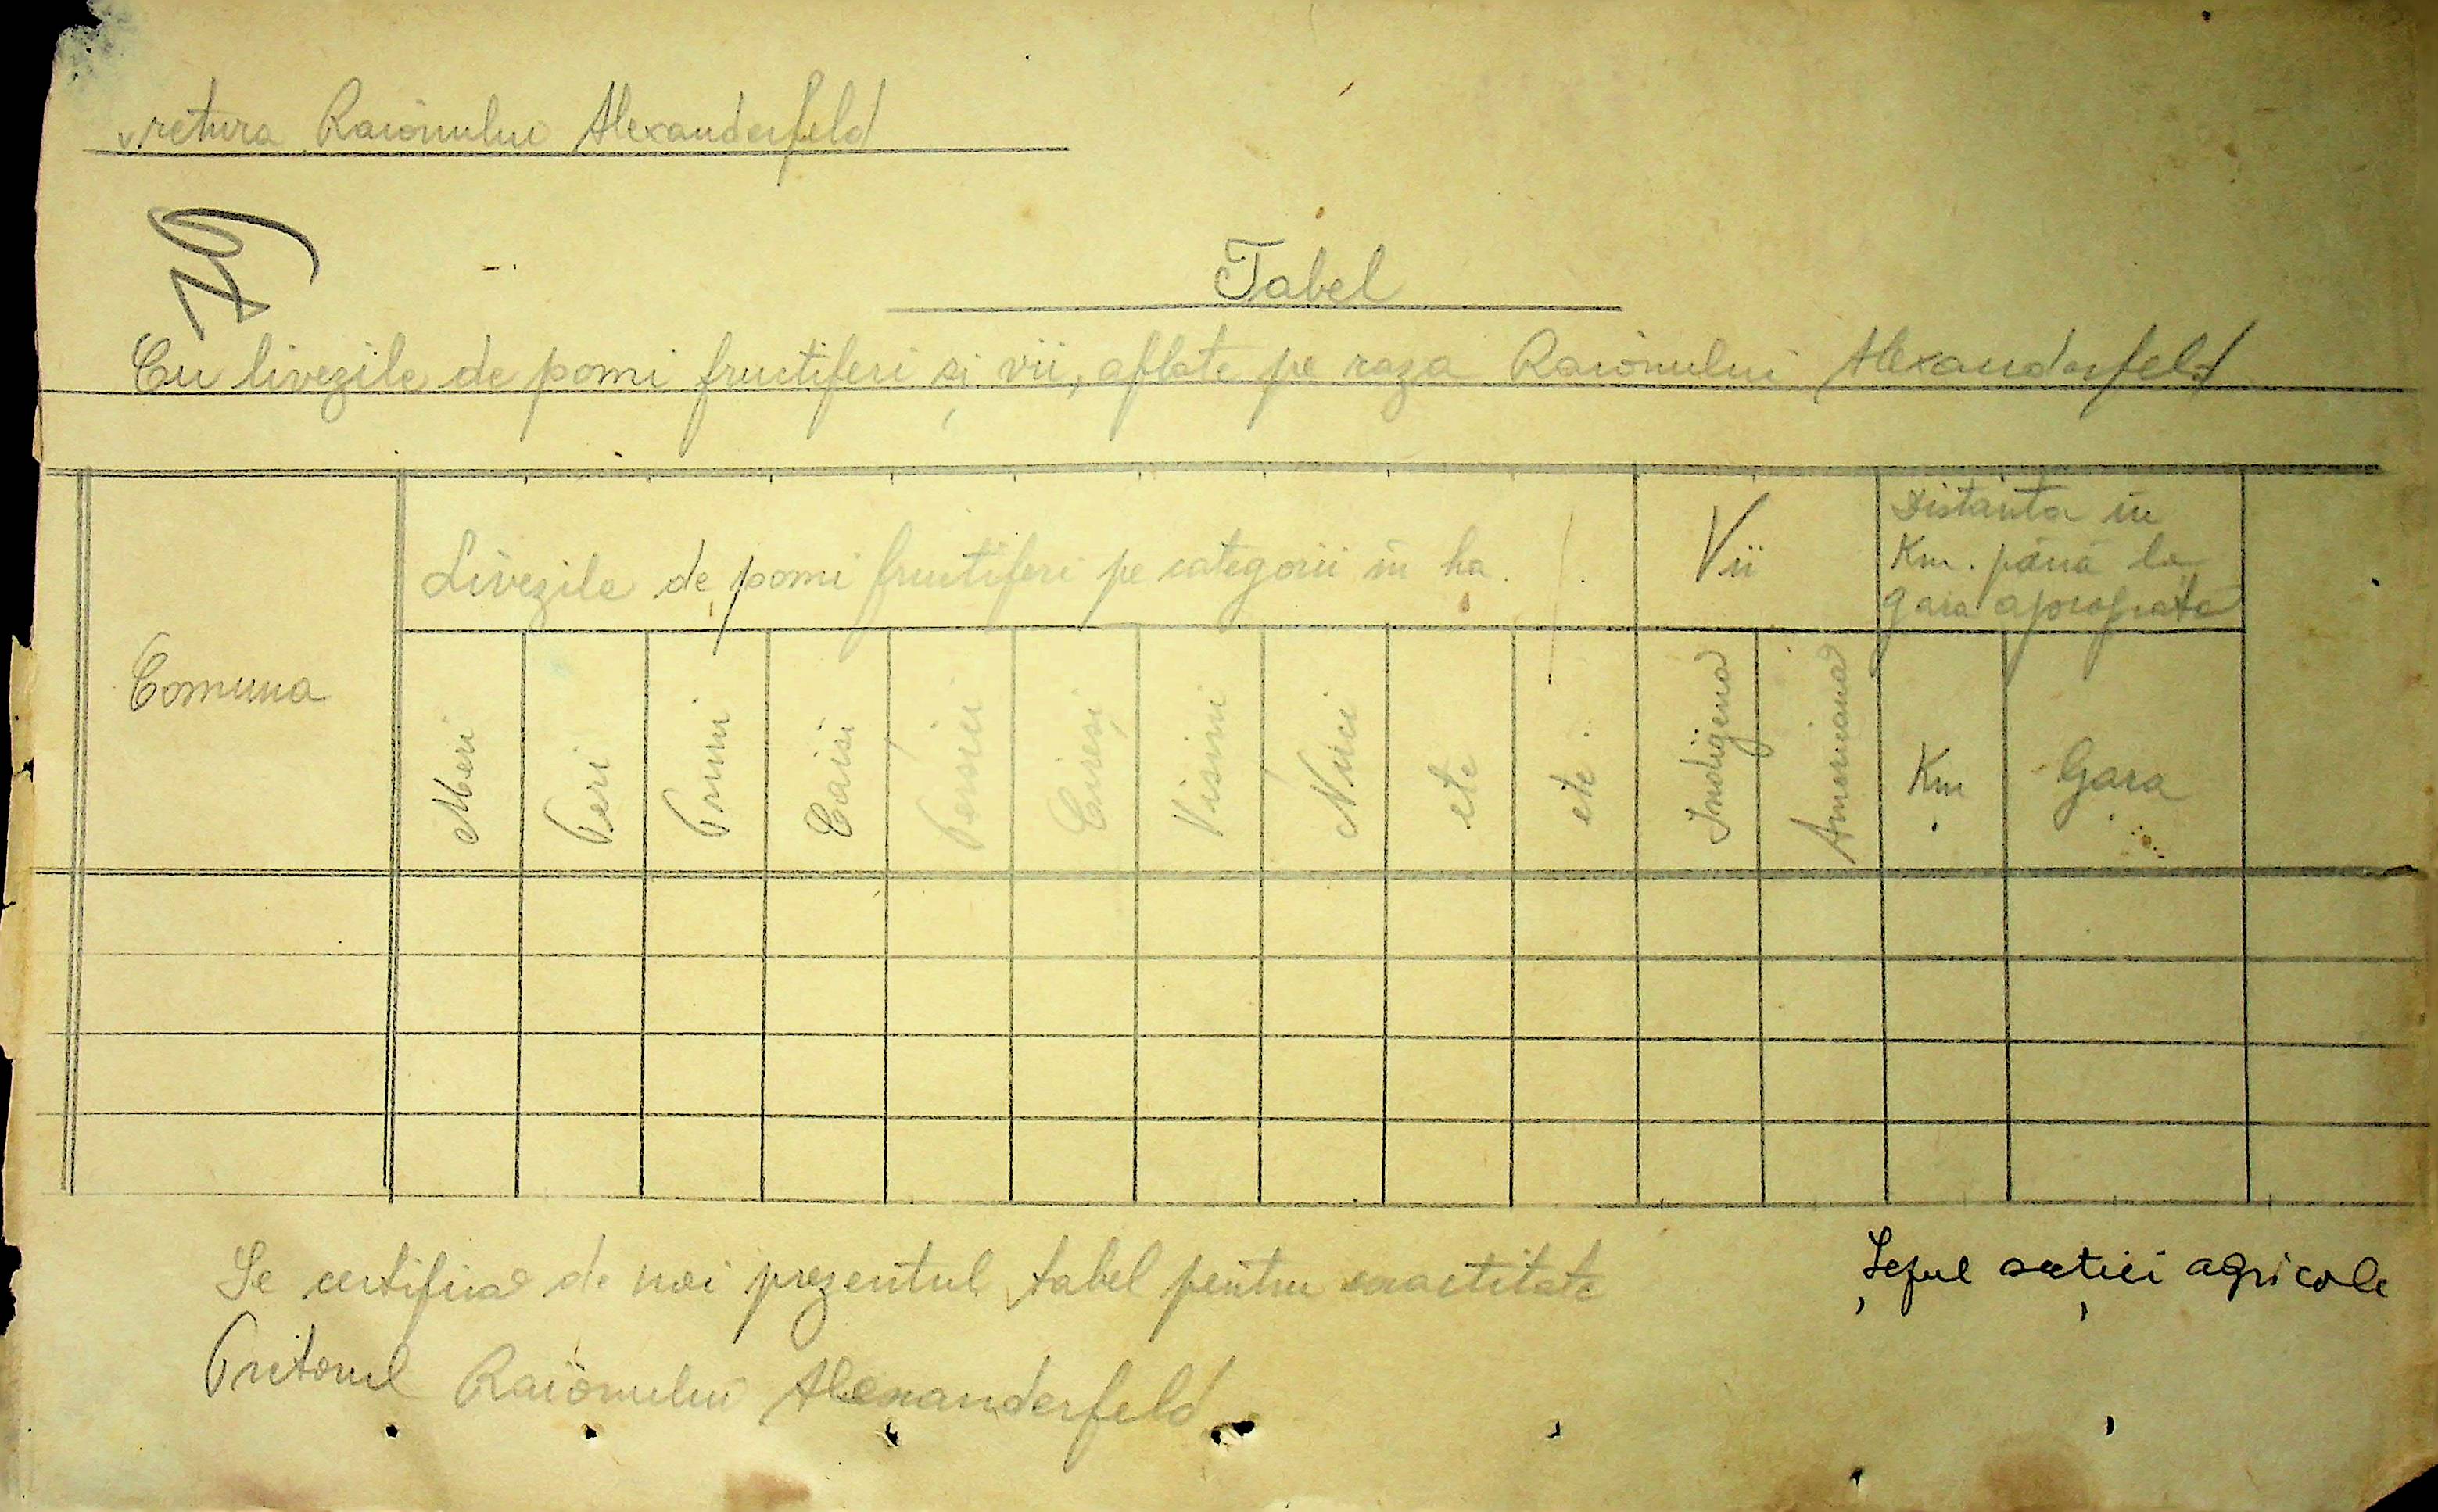 Pretura Raionului Alexanderfeld
79
Tabel
Cu livezile de pomi fructiferi și vii, aflate pe raza Raionului Alexanderfeld
Comuna
Livezile de pomi fructiferi pe categorii in ha.
Vii
Distanta in
Km. până la
gara apropiata
Meri
Peri
Pruni
Caisi
Persici
Cireși
Visini
Nuci
etc
etc.
Indigenă
Americană
Km
Gara
Se certifica de noi prezentul tabel pentru exactitate
Șeful secției agricole
Pretorul Raionului Alexanderfeld